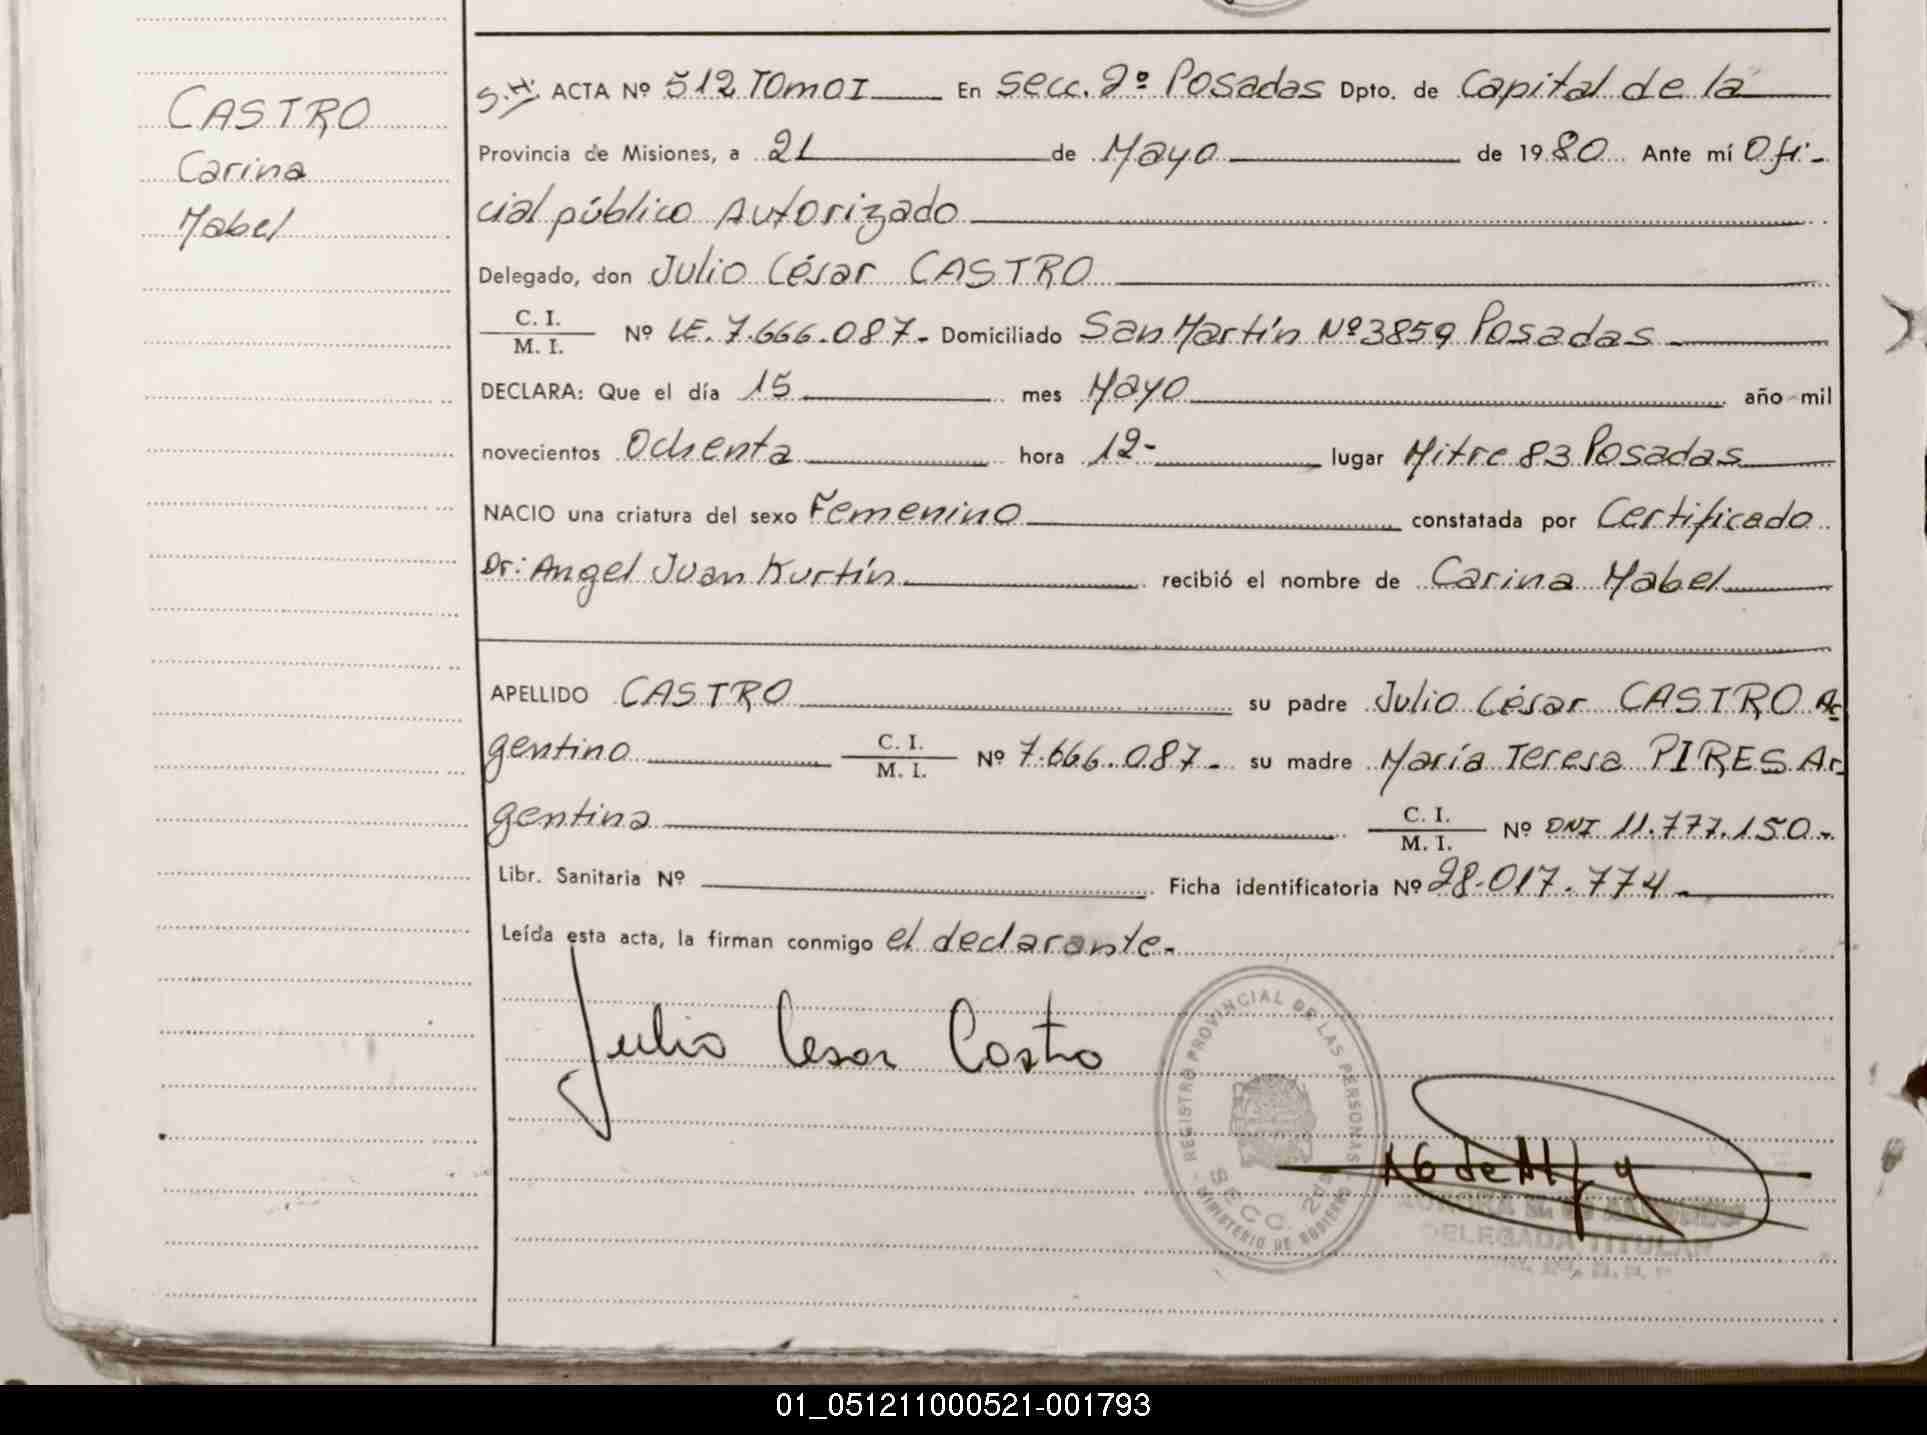 CASTRO
Carina
Mabel
S.H. ACTA Nº 512 TOMO I En Secc. 2º Posadas Dpto. de Capital de la
Provincia de Misiones, a 21 de Mayo de 1980 Ante mí Ofi-
cial público Autorizado
Delegado, don Julio César CASTRO
C. I.
M. I. Nº LE. 7.666.087- Domiciliado San Martín Nº 3859 Posadas
DECLARA: Que el día 15 mes Mayo año mil
novecientos Ochenta hora 12- lugar Mitre 83 Posadas
NACIO una criatura del sexo Femenino constatada por Certificado
Dr: Angel Juan Kurtin recibió el nombre de Carina Mabel
APELLIDO CASTRO su padre Julio César CASTRO Ar
gentino C. I. M. I. Nº 7.666.087- su madre María Teresa PIRES Ar
gentina C. I. M. I. Nº DNI 11.777.150-
Libr. Sanitaria Nº Ficha identificatoria Nº 28.017.774
Leída esta acta, la firman conmigo el declarante-
Julio Cesar Castro
REGISTRO PROVINCIAL DE LAS PERSONAS
SECC. 2da
MINISTERIO DE GOBIERNO
DELEGADA TITULAR
01_051211000521-001793